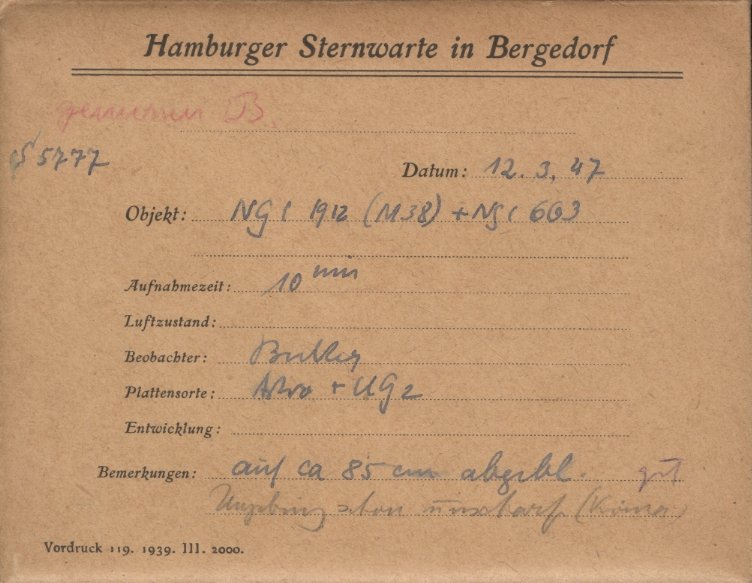 Hamburger Sternwarte in Bergedorf
B.
S 5777
Datum: 12. 3. 47
Objekt: NGC 1912 (M38) + NGC 663
Aufnahmezeit: 10 min
Luftzustand:
Beobachter:
Plattensorte: Astro + UG2
Entwicklung:
Bemerkungen: auf ca 85 cm abgebl. gut
schon unscharf (Koma)
Vordruck 119. 1939. III. 2000.